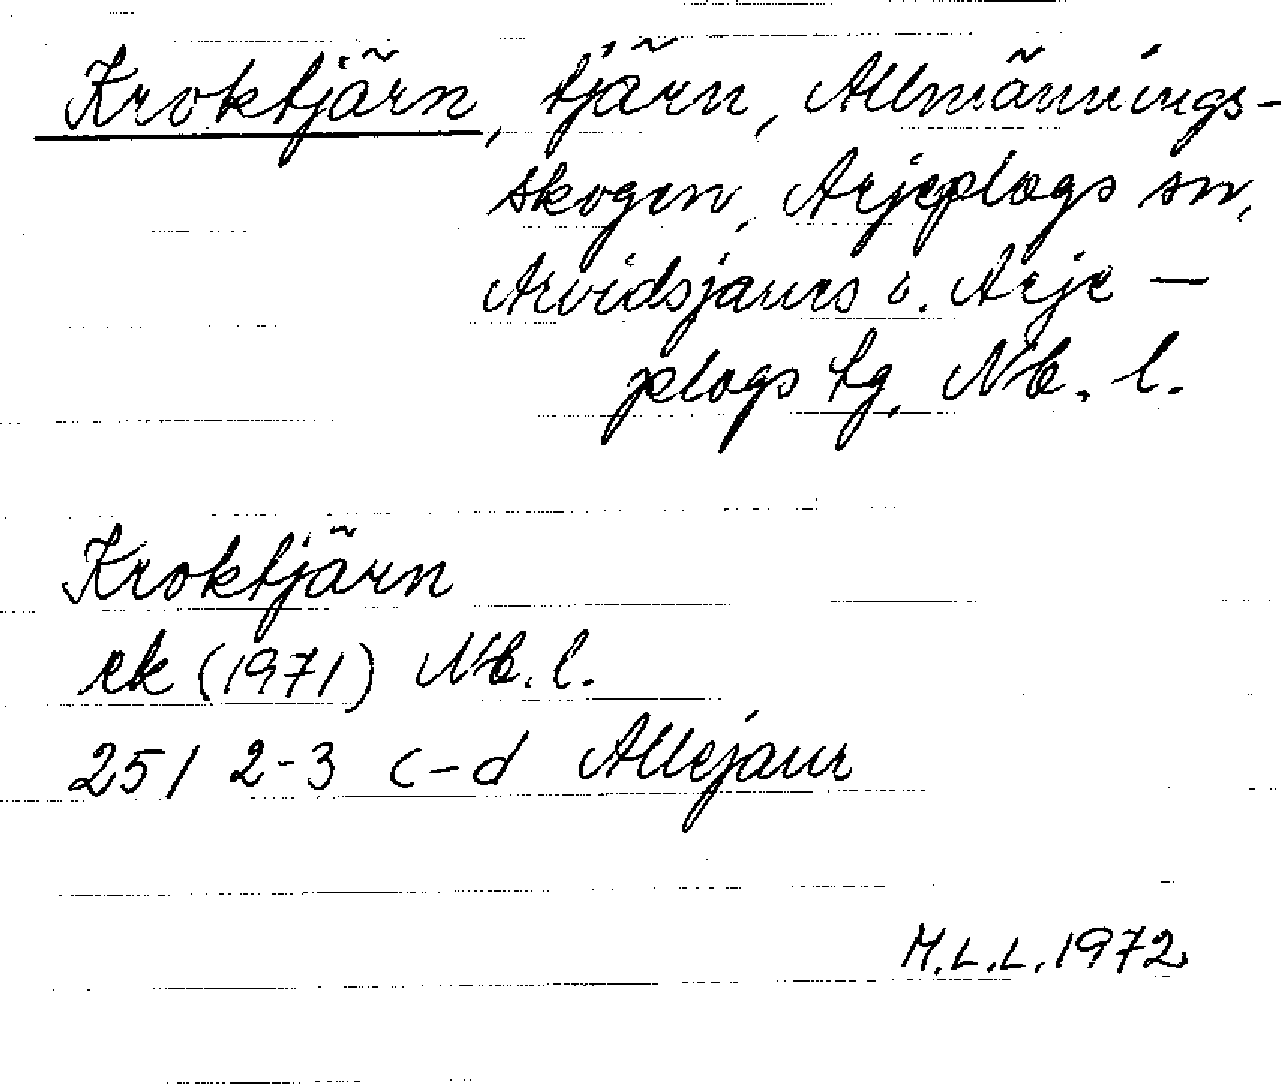 Kroktjärn, tjärn, Allmännings-
skogen, Arjeplogs sn,
Arvidsjaurs o. Arje-
plogs tg, Nb. l.
Kroktjärn
ek (1971) Nb. l.
25 I 2-3 c-d Allejaur
M.L.L. 1972